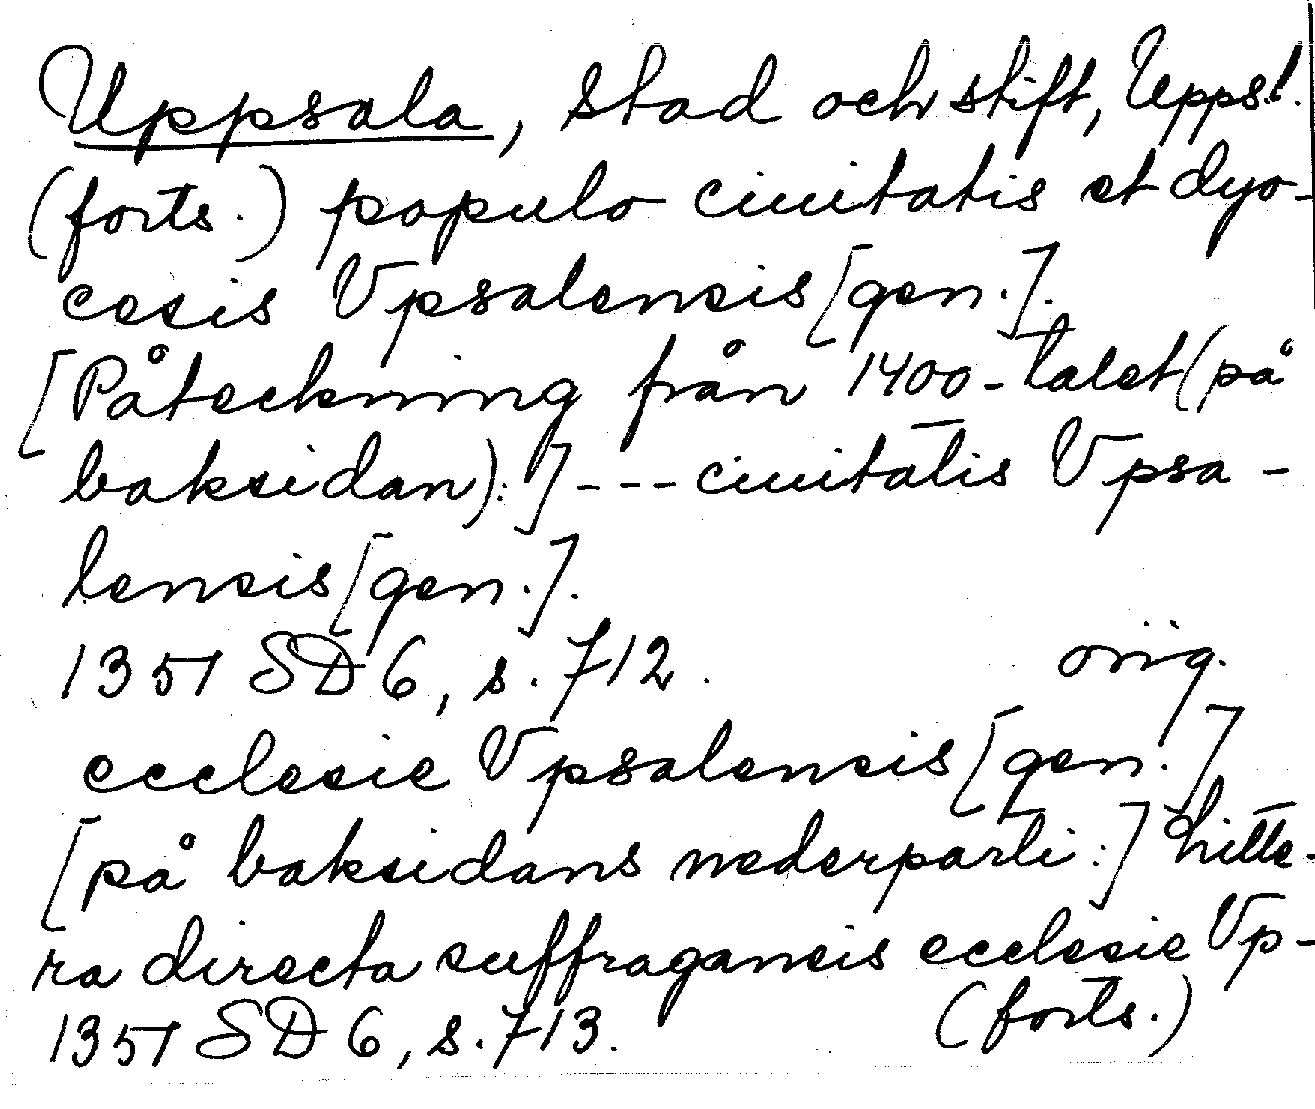 Uppsala, stad och stift, Uppsl.
(forts.) populo ciuitatis et dyo-
cesis Vpsalensis [gen.].
[Påteckning från 1400-talet (på
baksidan):] --- ciuitatis Vpsa-
lensis [gen.].
1351 SD 6, s. 712. orig.
ecclesie Vpsalensis [gen.]
[på baksidans nederparti:] Litte-
ra directa suffraganeis ecclesie Vp-
1351 SD 6, s. 713. (forts.)